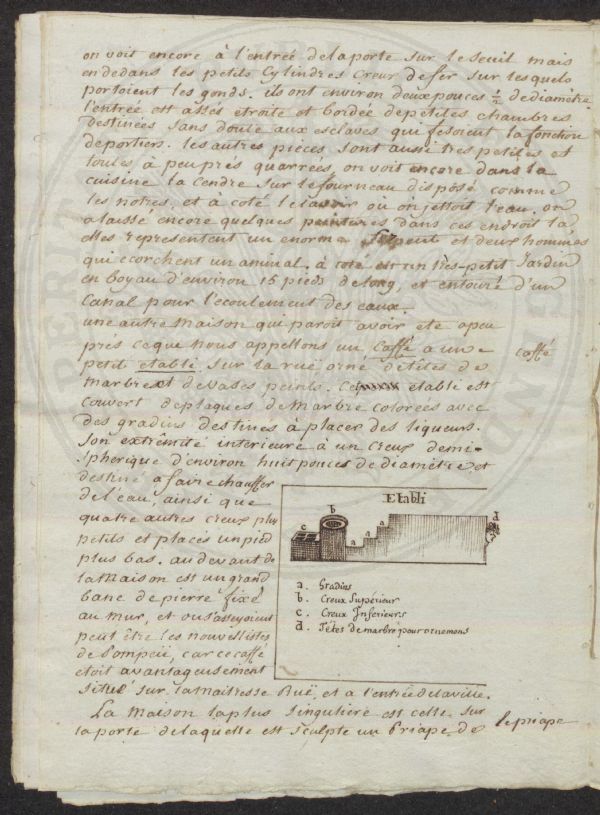 on voit encore à l'entrée de la porte sur le seuil mais
en dedans les petits Cylindres Creux de fer sur lesquels
portoient les gonds. ils ont environ deux pouces ½ de diamètre
l'entrée est assés étroite et bordée de petites chambres
destinées sans doute aux esclaves qui fesoient la fonction
de portiers. les autres pièces sont aussi très petites et
toutes à peu près quarrées, on voit encore dans la
cuisine la Cendre sur le fourneau disposé comme
les notres, et à coté le lavoir où on jettoit l'eau. on
a laissé encore quelques peintures dans ces endroit là
elles representent un enorme Serpent et deux hommes
qui ecorchent un animal. à coté est un très-petit Jardin
en boyau d'environ 15 pieds de long, et entouré d'un
Canal pour l'ecoulement des eaux.
une autre Maison qui paroit avoir eté apeu
près ce que nous appellons un Caffé a une
caffé
petit etabli sur la ruë orné de têtes de
marbre et de vases peints. Cet etabli est
couvert de plaques de Marbre colorées avec
des gradins destinés à placer des liqueurs.
Son extrêmité interieure à un Creux demi-
spherique d'environ huit pouces de diamètre et
destiné a faire chauffer
de l'eau, ainsi que
quatre autres creux plus
petits et placés un pied
plus bas. au devant de
la Maison est un grand
banc de pierre fixé
au mur, et ou s'asseyoient
peut être les nouvellistes
de Pompeii, car ce caffé
etoit avantageusement
situé sur la maitresse Ruë, et a l'entrée de la ville.
Etabli
a b c d
a a a
a. Gradins
b. Creux Supérieur
c. Creux Inferieurs
d. Têtes de marbre pour ornemens
La Maison la plus singulière est celle sur
la porte de laquelle est sculpté un Priape de
le priape